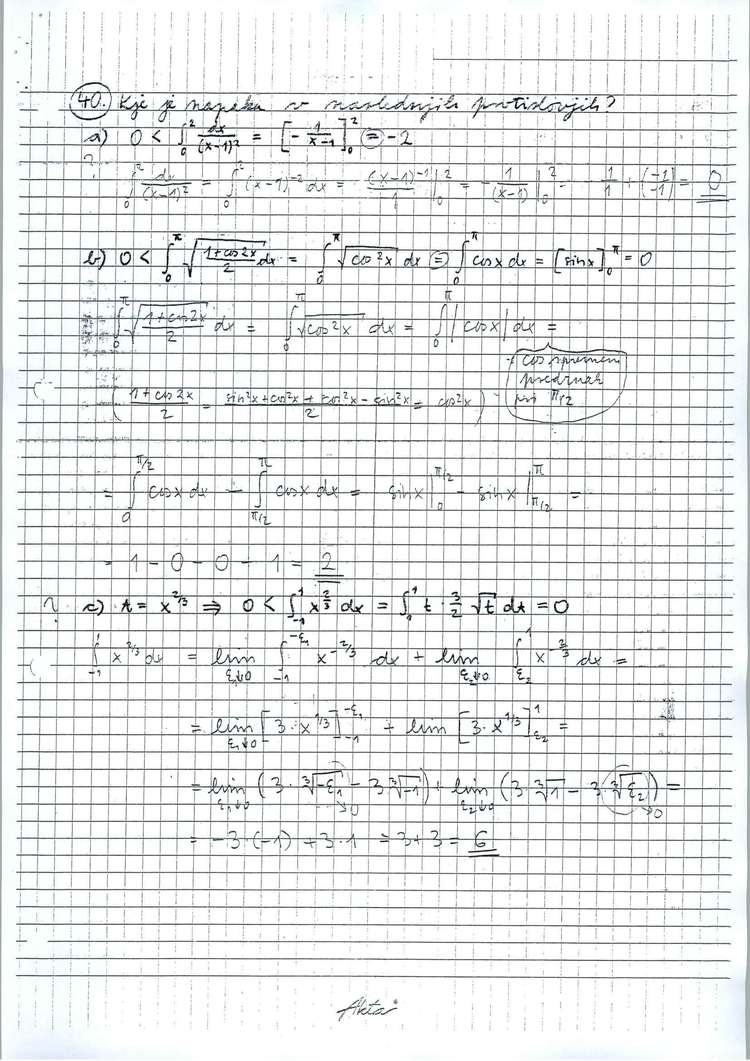 40. Kje je napaka v naslednjih protislovjih?
a) 0 < ∫_0^2 dx/(x-1)^2 = [-1/(x-1)]_0^2 = -2
? ∫_0^2 dx/(x-1)^2 = ∫_0^2 (x-1)^{-2} dx = -(x-1)^{-1}/1 |_0^2 = -1/(x-1) |_0^2 = -1/1 + (-1/-1) = 0
b) 0 < ∫_0^π √((1+cos2x)/2) dx = ∫_0^π √(cos^2 x) dx = ∫_0^π cosx dx = [sinx]_0^π = 0
∫_0^π √((1+cos2x)/2) dx = ∫_0^π √(cos^2 x) dx = ∫_0^π |cosx| dx =
cos spremeni
predznak
pri π/2
((1+cos2x)/2 = (sin^2x + cos^2x + cos^2x - sin^2x)/2 = cos^2x)
= ∫_0^{π/2} cosx dx - ∫_{π/2}^π cosx dx = sinx |_0^{π/2} - sinx |_{π/2}^π =
= 1 - 0 - 0 - 1 = 2
? c) t = x^{2/3} ⇒ 0 < ∫_{-1}^1 x^{2/3} dx = ∫_1^1 t · 3/2 √t dt = 0
∫_{-1}^1 x^{2/3} dx = lim_{ε₁↓0} ∫_{-1}^{-ε₁} x^{-2/3} dx + lim_{ε₂↓0} ∫_{ε₂}^1 x^{-2/3} dx =
= lim_{ε₁↓0} [3·x^{1/3}]_{-1}^{-ε₁} + lim [3·x^{1/3}]_{ε₂}^1 =
= lim_{ε₁↓0} (3·∛(-ε₁) - 3∛(-1)) + lim_{ε₂↓0} (3·∛1 - 3·∛(ε₂)) =
→0 →0
= -3·(-1) + 3·1 = 3+3 = 6